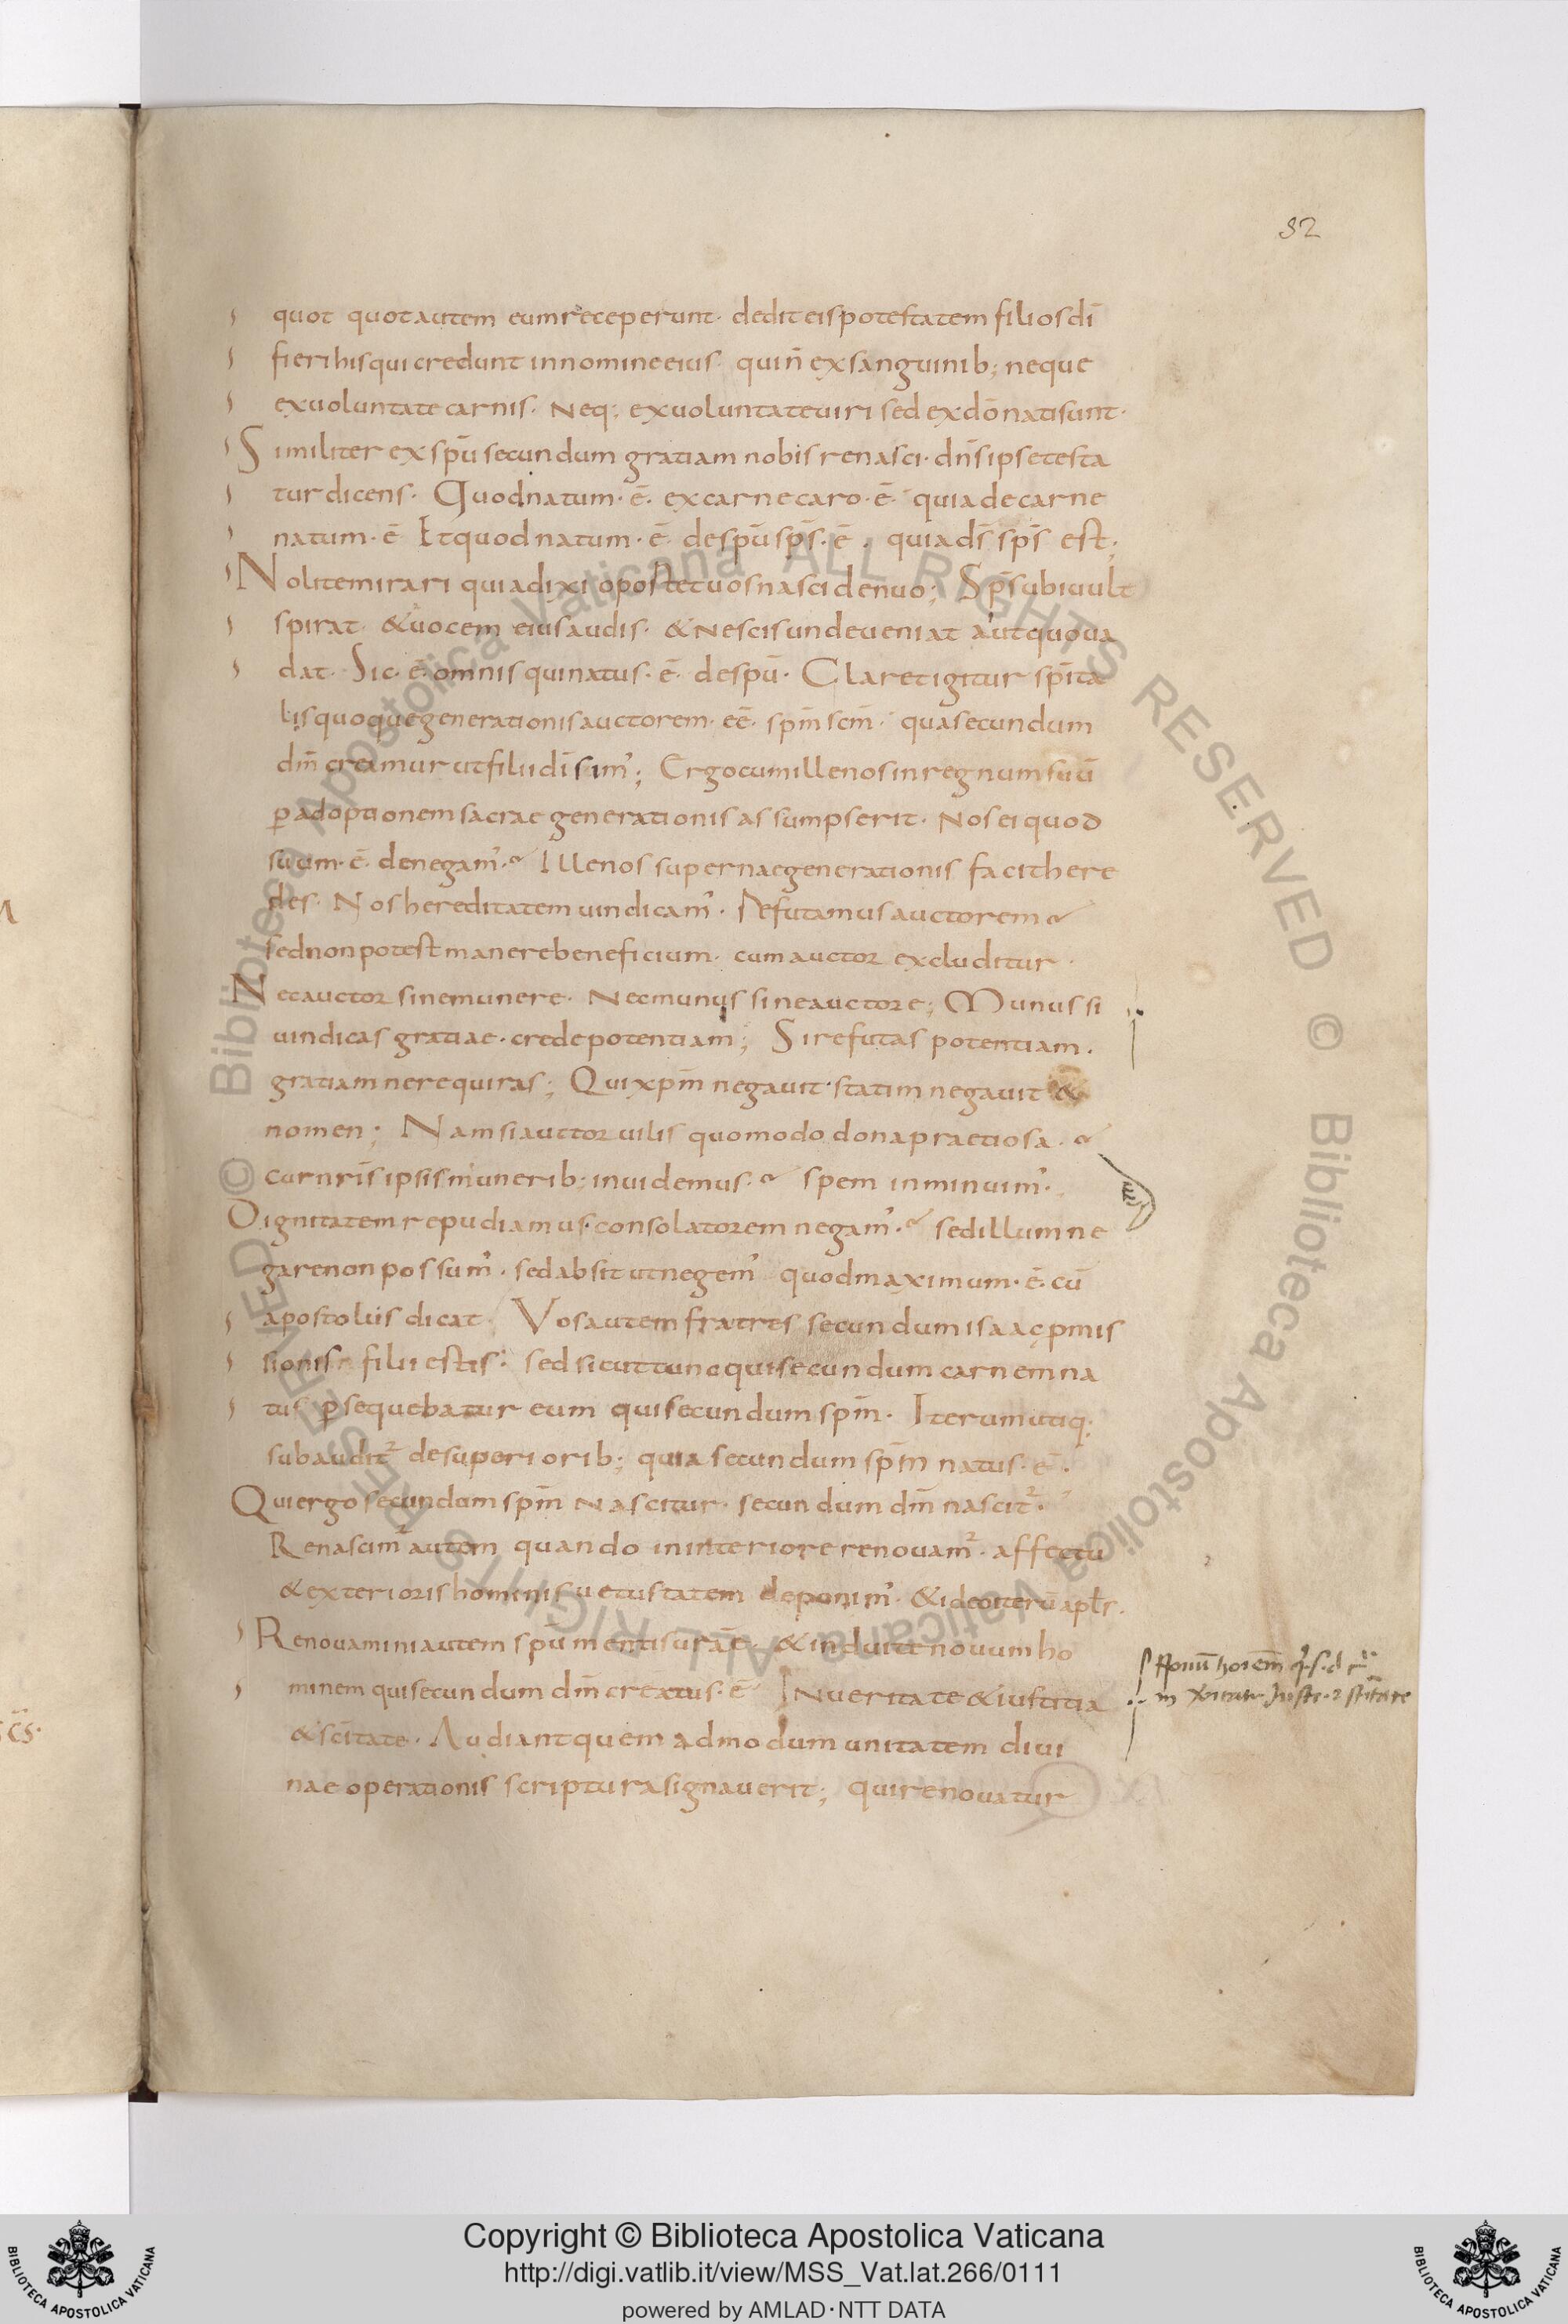 32
quot quot autem eum receperunt· dedit eis potestatem filios dī
fieri his qui credunt in nomine eius· qui n̄ ex sanguinib; neque
ex uoluntate carnis· Neq; ex uoluntate uiri sed ex dō nati sunt·
Similiter ex spū secundum gratiam nobis renasci· dn̄s ipse testa
tur dicens· Quod natum· ē· ex carne caro· ē· quia de carne
natum· ē Et quod natum· ē de spū sps̄· ē· quia ds̄ sps̄ est;
Nolite mirari quia dixi oportet uos nasci denuo; Sps̄ ubi uult
spirat· & uocem eius audis· & Nescis unde ueniat aut quo ua
dat· Sic· ē· omnis qui natus· ē· de spū· Claret igitur spīta
lis quoque generationis auctorem· eē· spm̄ scm̄· qua secundum
dm̄ creamur ut filii dī sim'; Ergo cum ille nos in regnum suū
p adoptionem sacrae generationis assumpserit· Nos ei quod
suum· ē· denegam'· Ille nos supernae generationis facit here
des· Nos hereditatem uindicam'· Refutamus auctorem
sed non potest manere beneficium· cum auctor excluditur·
Nec auctor sine munere· Nec munus sine auctore; Munus si
uindicas gratiae· crede potentiam; Si refutas potentiam·
gratiam ne requiras; Qui xpm̄ negauit· statim negauit &
nomen; Nam si auctor uilis quomodo dona praetiosa·
cur nr̄is ipsis munerib; inuidemus· spem inminuim'·
Dignitatem repudiamus· consolatorem negam'· sed illum ne
gare non possum'· sed absit ut negem' quod maximum· ē· cū
apostolus dicat· Vos autem fratres secundum isaac pmis
sionis filii estis· sed sicut tunc qui secundum carnem na
tus psequebatur eum qui secundum spm̄· Iterum utiq;
subaudit' de superiorib; quia secundum spm̄ natus· ē·
Qui ergo secundum spm̄ Nascitur· secundum dm̄ nascit'·
Renascim' autem quando in interiore renouam'· affectu
& exterioris hominis uetustatem deponim'· & ideo iterū apls·
Renouamini autem spū mentis urāe· & induite nouum ho
minem qui secundum dm̄ creatus· ē IN ueritate & iustitia
& scītate· Audiant quem admodum unitatem diui
nae operationis scriptura signauerit; qui renouatur
cs·
Copyright © Biblioteca Apostolica Vaticana
http://digi.vatlib.it/view/MSS_Vat.lat.266/0111
powered by AMLAD·NTT DATA
BIBLIOTECA APOSTOLICA VATICANA
BIBLIOTECA APOSTOLICA VATICANA
© Biblioteca Apostolica Vaticana ALL RIGHTS RESERVED © Biblioteca Apostolica Vaticana ALL RIGHTS RESERVED